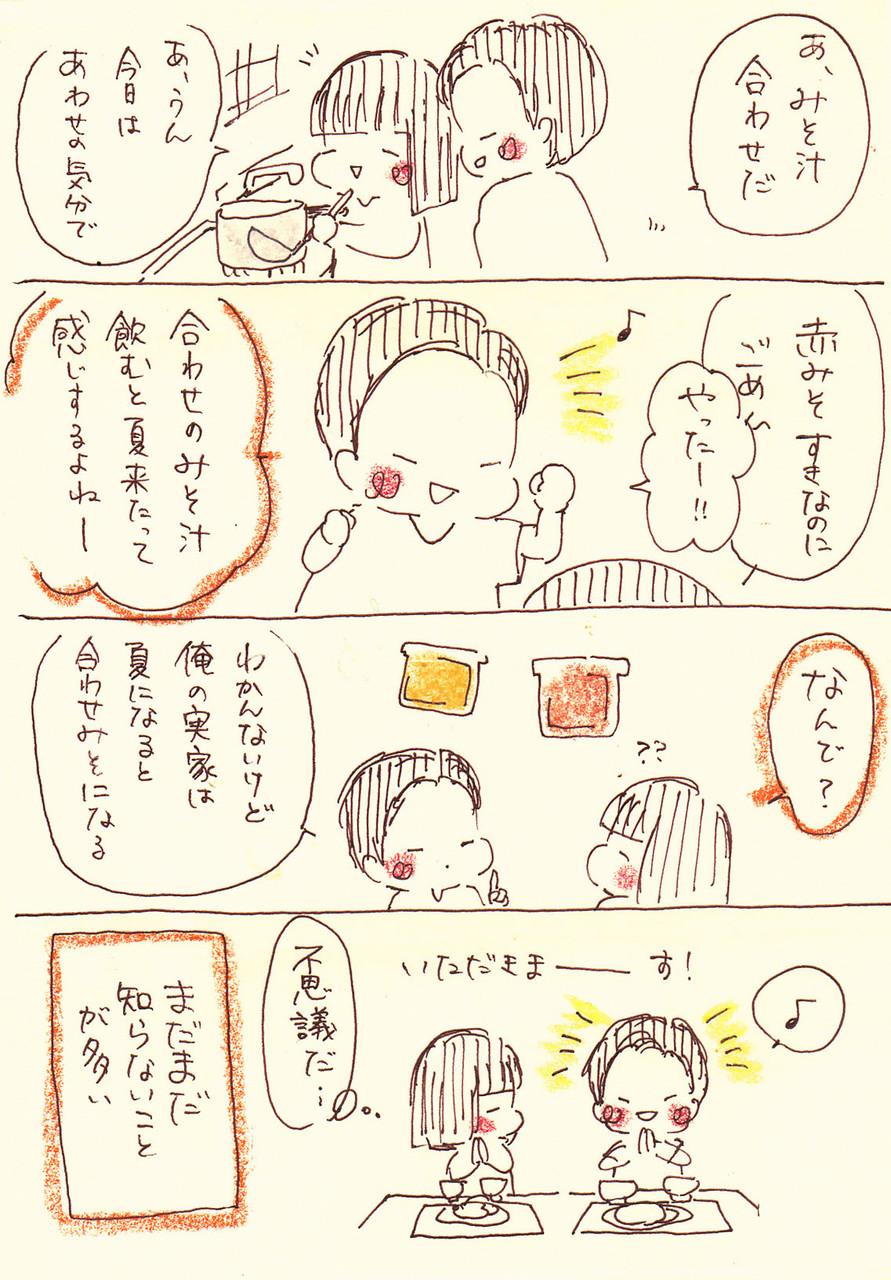 あ、みそ汁
合わせだ
あ、うん
今日は
あわせの気分で
赤みそすきなのに
ごめん
やったー!!
合わせのみそ汁
飲むと夏来たって
感じするよねー
なんで?
??
わかんないけど
俺の実家は
夏になると
合わせみそになる
いただきまーーす!
不思議だ…
まだまだ
知らないこと
が多い